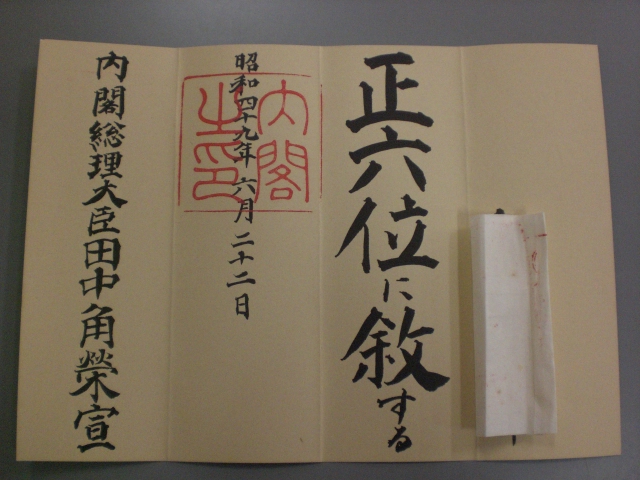 正六位に敘する
昭和四十九年六月二十二日
内閣之印
内閣総理大臣田中角榮宣